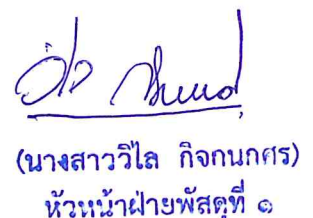 (นางสาววิไล กิจกนกศร)
หัวหน้าฝ่ายพัสดุที่ ๑